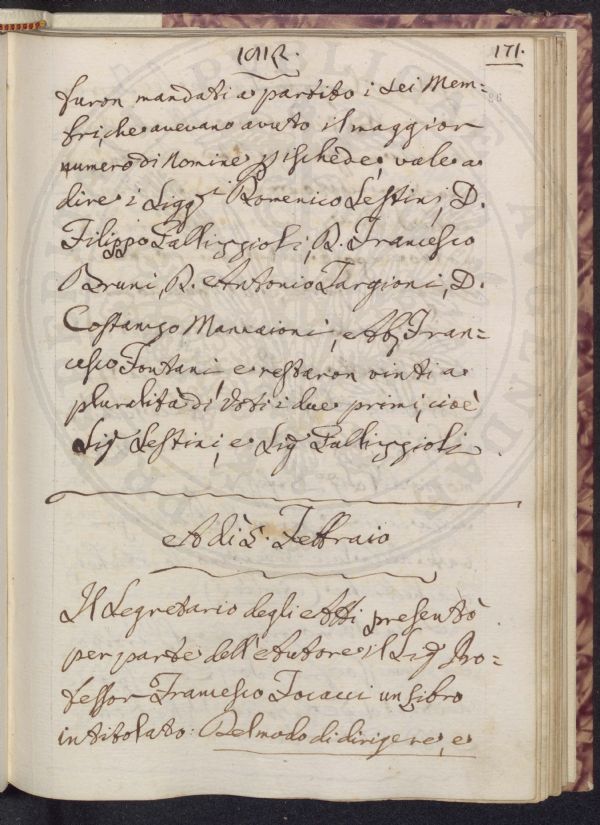 1812.
171.
furon mandati a partito i sei Mem=
86
bri, che avevano avuto il maggior
numero di Nomine p ischede, vale a
dire i Sigg.i Domenico Sestini, D.
Filippo Gallizzioli, D. Francesco
Bruni, D. Antonio Targioni, D.
Costanzo Mancaioni, Ab. Fran=
cesco Fontani, e restaron vinti a
pluralità di Voti i due primi, cioè
Sig Sestini, e Sig Gallizzioli.
A dì 5. Febbraio
Il Segretario degli Atti presentò
per parte dell'Autore il Sig Pro=
fessor Francesco Focacci un Libro
intitolato: Del modo di dirigere, e